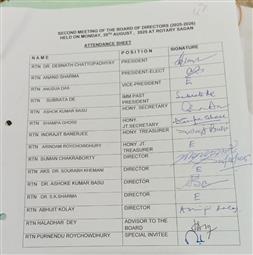 SECOND MEETING OF THE BOARD OF DIRECTORS (2025-2026)
HELD ON MONDAY, 25TH AUGUST, 2025 AT ROTARY SADAN
ATTENDANCE SHEET
NAME POSITION SIGNATURE
RTN DR. DEBNATH CHATTOPADHYAY PRESIDENT
RTN ANAND SHARMA PRESIDENT-ELECT
RTN ANUGUA DAS VICE-PRESIDENT E
RTN SUBRATA DE IMM PAST PRESIDENT Subrata De
RTN ASHOK KUMAR BASU HONY. SECRETARY
RTN SHAMPA GHOSH HONY. JT.SECRETARY Shampa Ghosh
RTN INDRAJIT BANERJEE HONY. TREASURER
RTN ARINDAM ROYCHOWDHURY HONY JT. TREASURER E
RTN SUMAN CHAKRABORTY DIRECTOR
RTN AKS. DR. SOURABH KHEMANI DIRECTOR E
RTN DR. ASHOKE KUMAR BASU DIRECTOR
RTN DR. S.K.SHARMA DIRECTOR E
RTN ABHIJIT KOLAY DIRECTOR
RTN HALADHAR DEY ADVISOR TO THE BOARD
RTN PURNENDU ROYCHOWDHURY SPECIAL INVITEE